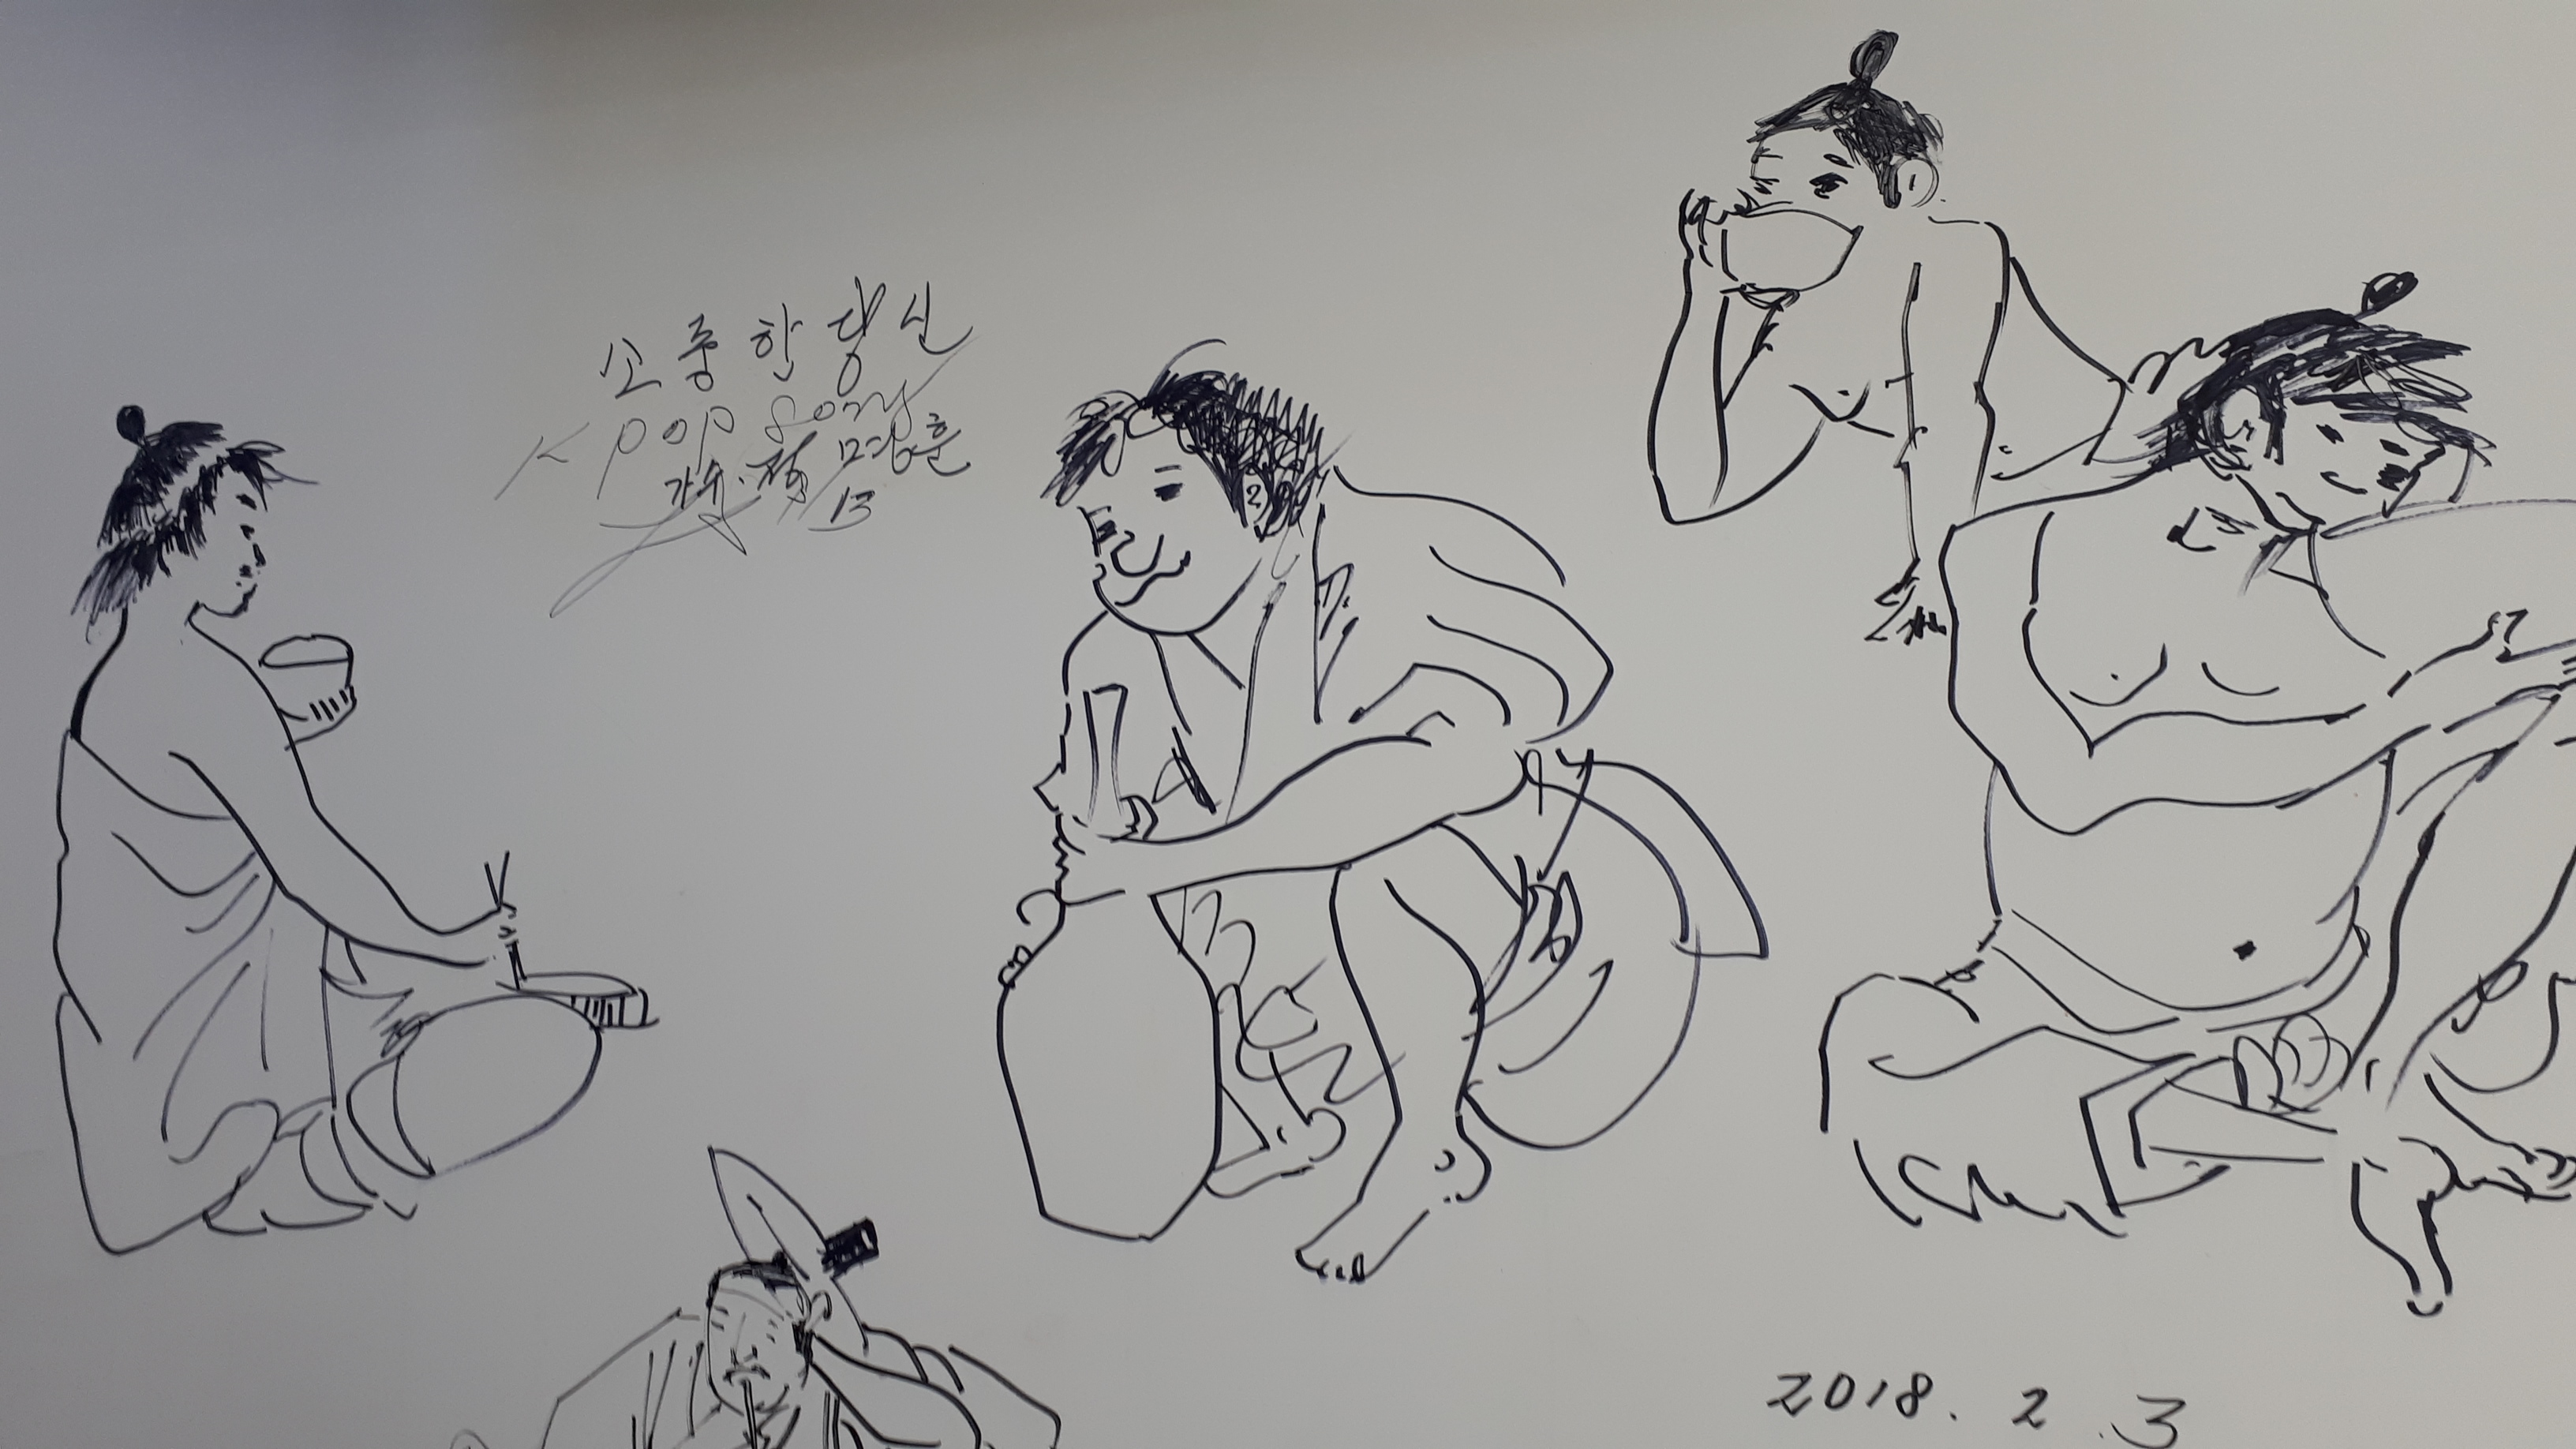 소중한당신
K pop song
가수. 명훈
13
2018. 2. 3